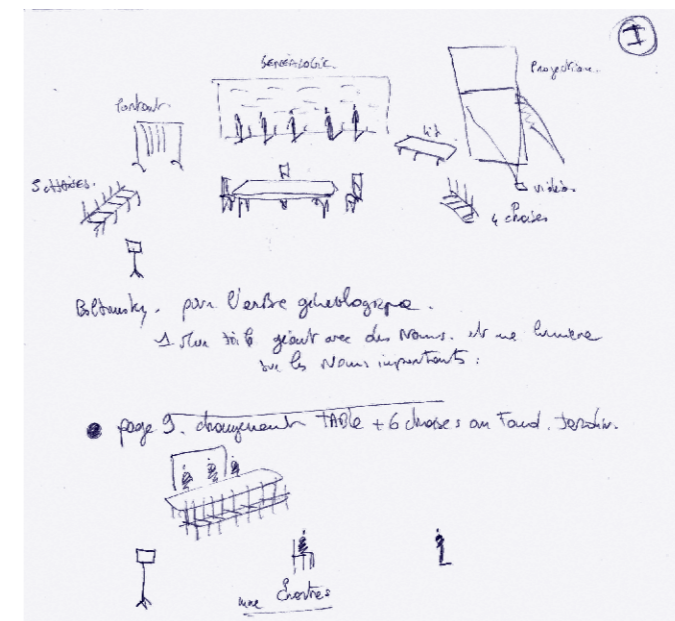 I
GENEALOGIE.
Projection.
Portant.
Lit
5 chaises.
vidéo.
4 chaises
Boltansky. pour l'arbre généalogique.
1 toile géant avec des Noms. et une lumière
sur les Noms importants.
page 9. changement TABLE + 6 chaises au Fond. Jardin.